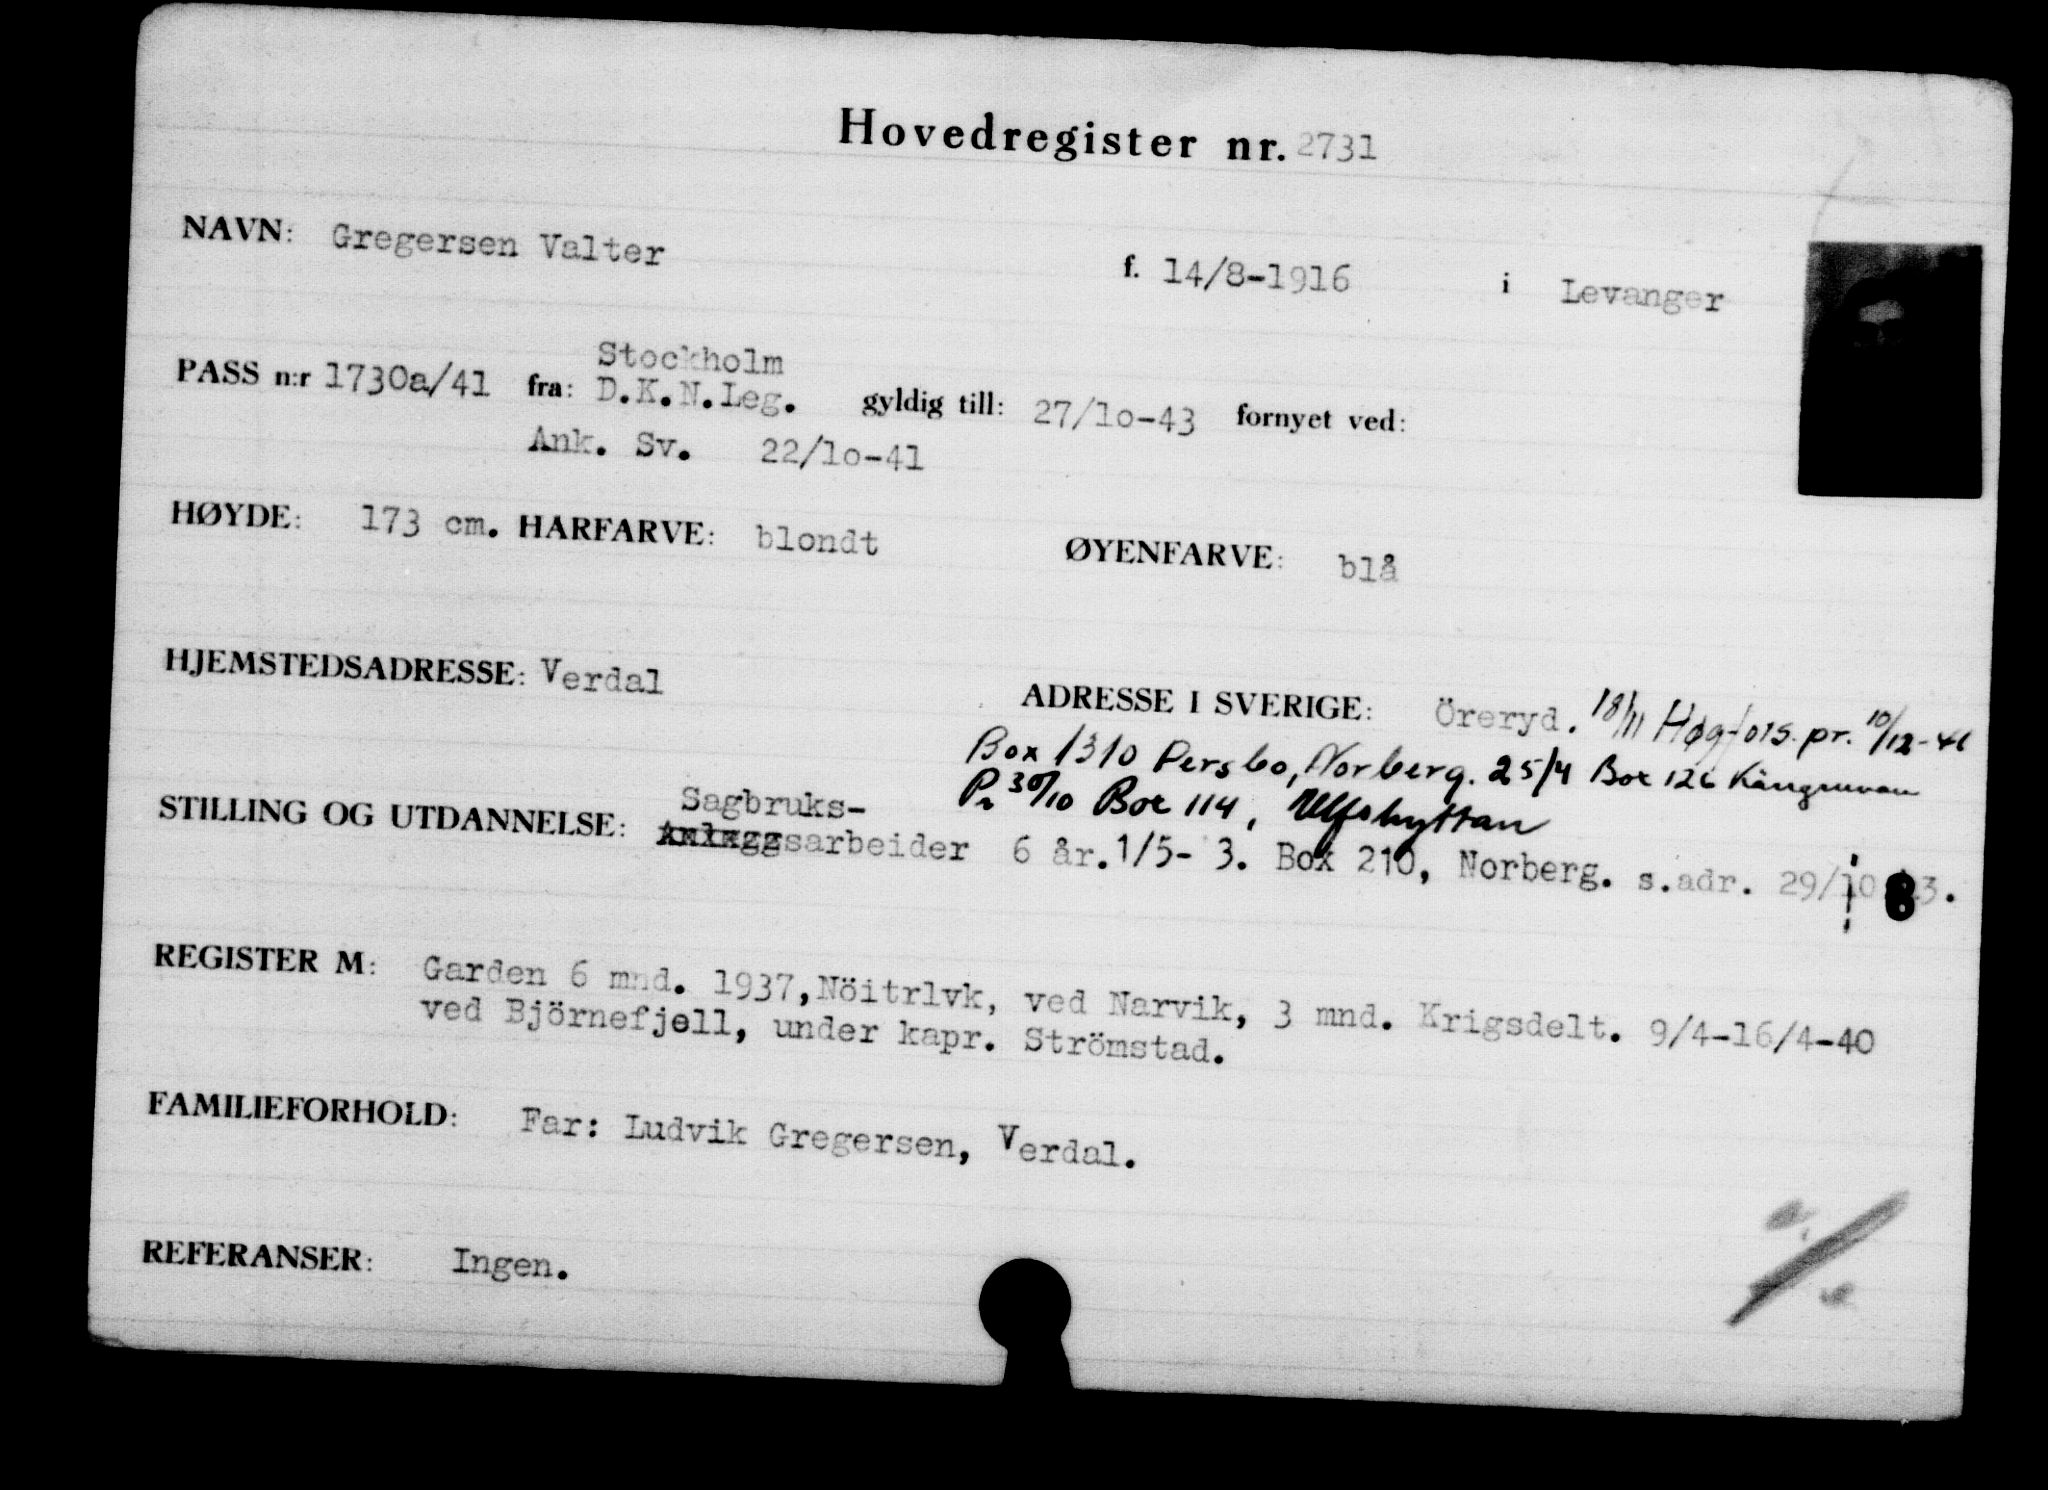 Hovedregister nr. 2731
NAVN: Gregersen Valter f. 14/8-1916 i Levanger
Stockholm
PASS n:r 1730a/41 fra: D.K.N.Leg. gyldig till: 27/lo-43 fornyet ved:
Ank. Sv. 22/lo-41
HØYDE: 173 cm. HARFARVE: blondt ØYENFARVE: blå
HJEMSTEDSADRESSE: Verdal ADRESSE I SVERIGE: Öreryd. 18/11 Høgfors. pr. 10/12-41
Box 1310 Persbo, Norberg. 25/4 Box 126 Kärrgruvan
Sagbruks- Pr 30/10 Box 114, Ulfshyttan
STILLING OG UTDANNELSE: Anleggsarbeider 6 år. 1/5- 3. Box 210, Norberg. s.adr. 29/10 3.
REGISTER M: Garden 6 mnd. 1937, Nöitrlvk, ved Narvik, 3 mnd. Krigsdelt. 9/4-16/4-40
ved Björnefjell, under kapr. Strömstad.
FAMILIEFORHOLD: Far: Ludvik Gregersen, Verdal.
REFERANSER: Ingen.